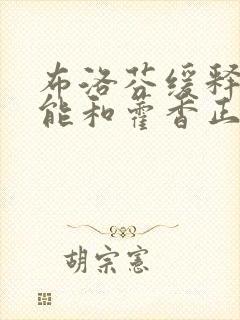 布洛芬缓释
能和霍香正
胡宗憲